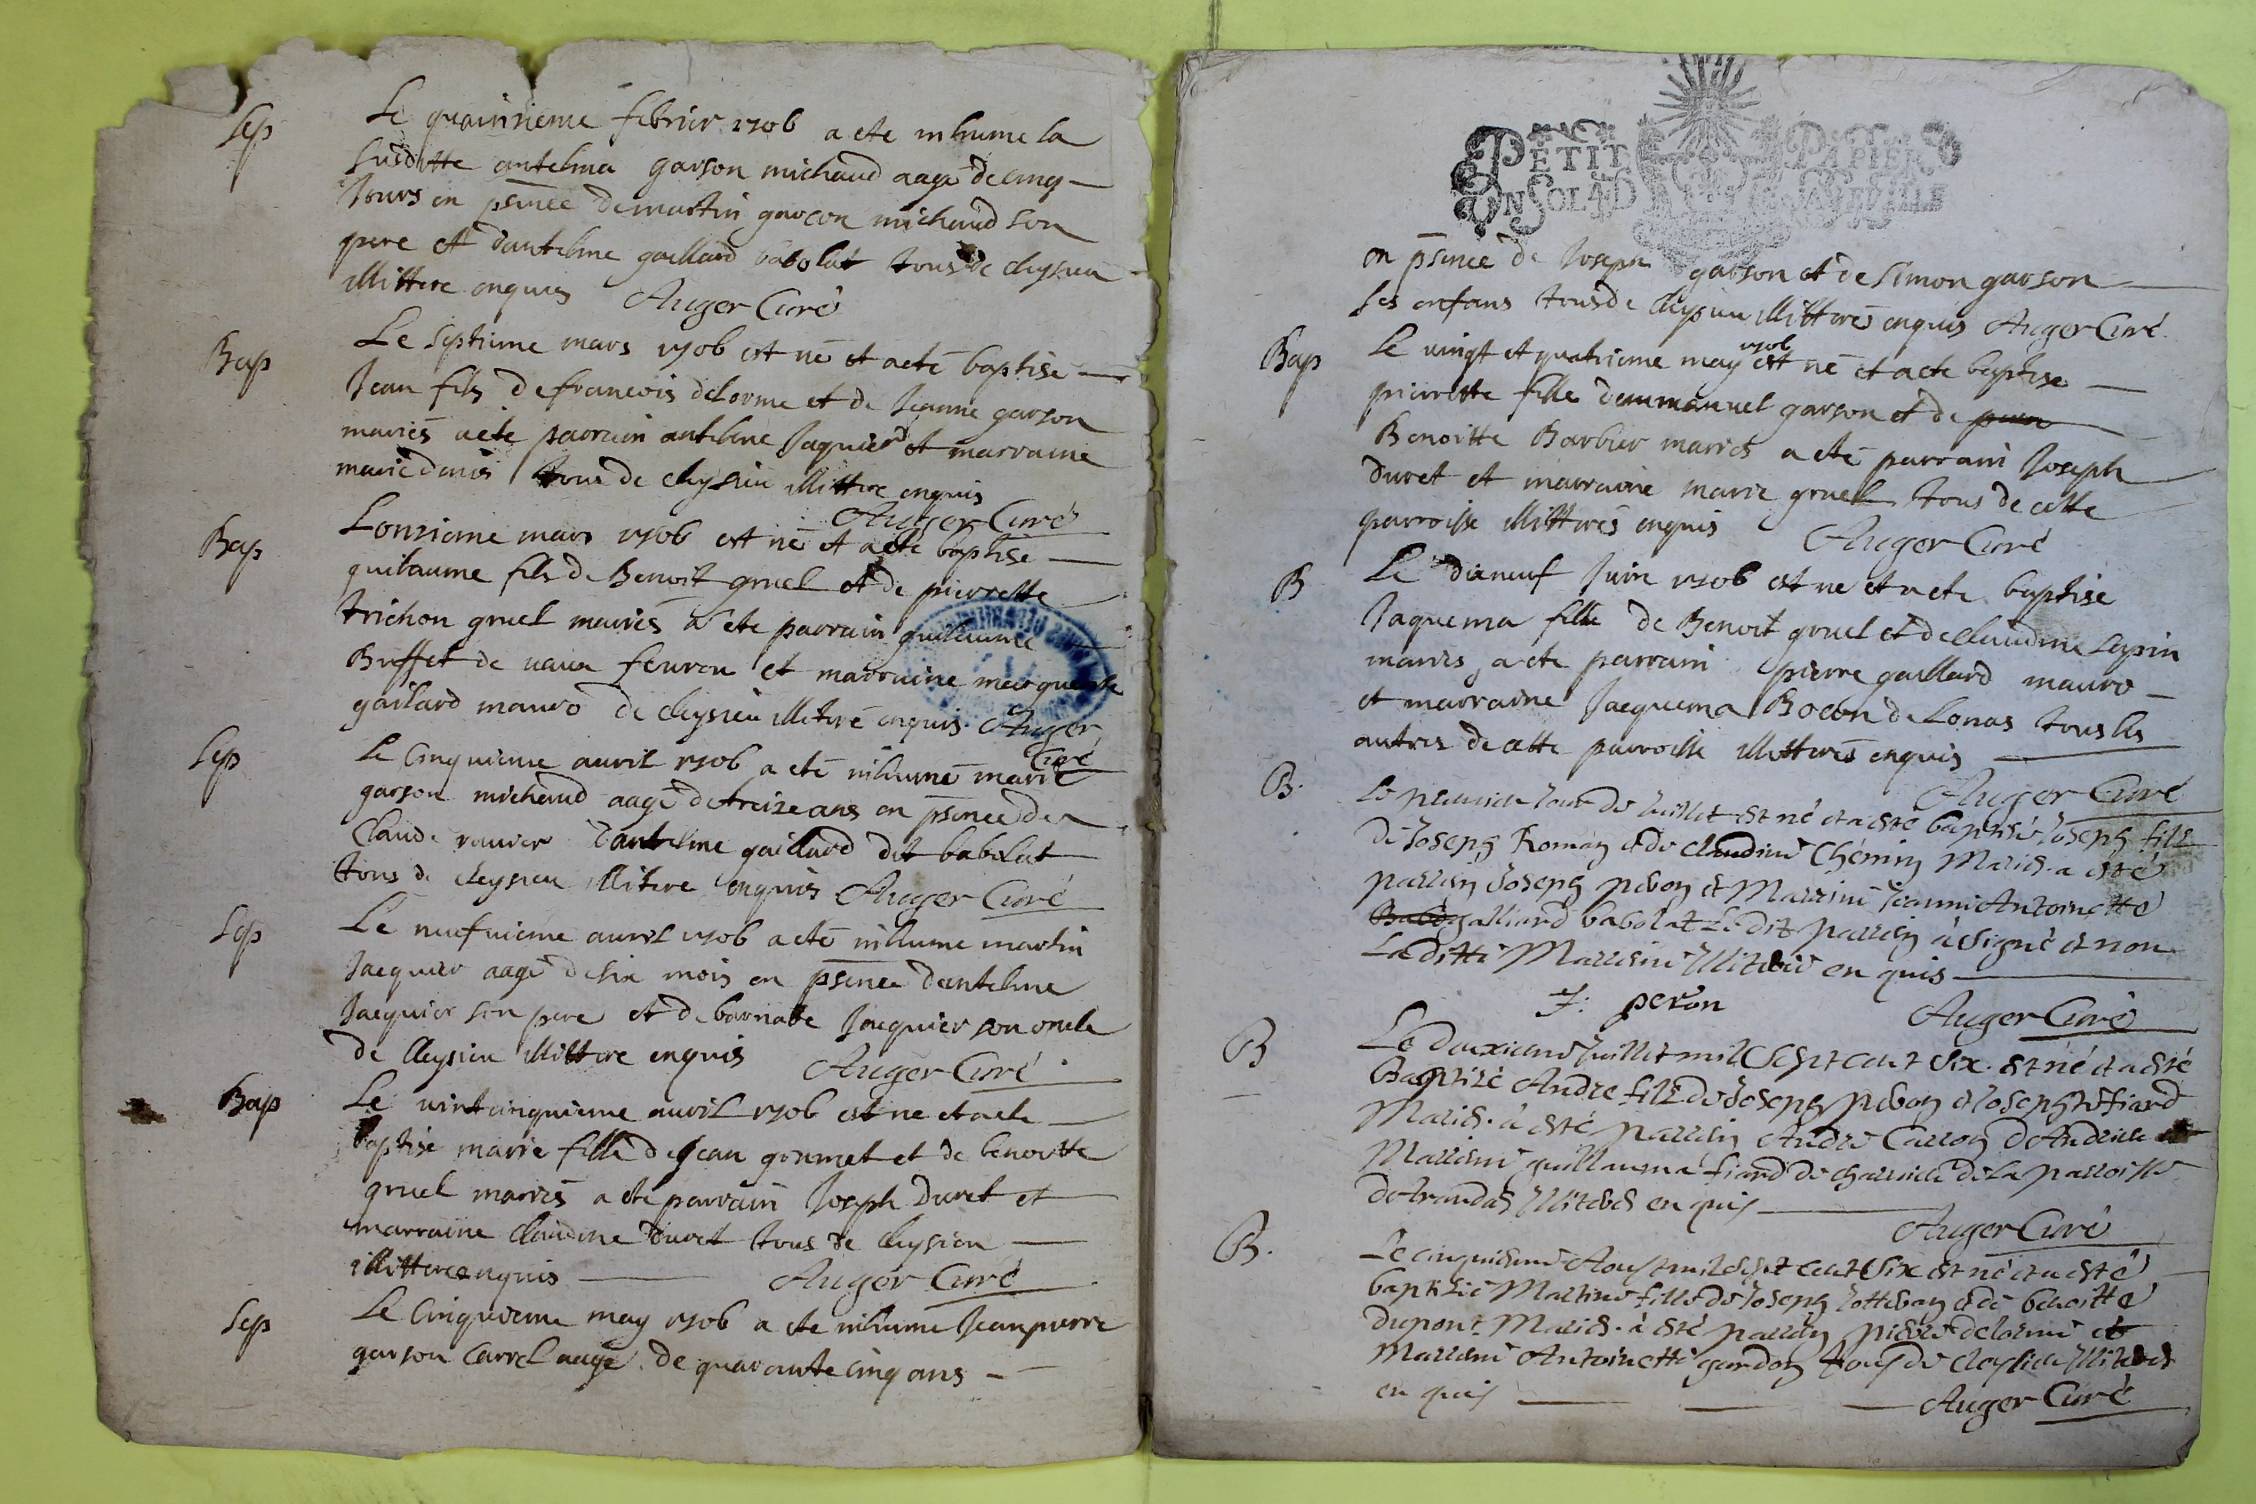 Sep
Le quainsieme febrier 1706 a ete inhume la
susditte antelma garson michaud aagé de cinq
Jours en psence de martin garcon michaud son
pere et d'antelme gaillard babolat tous de cleysieu
illittere enquis Auger Curé
Bap
Le septieme mars 1706 est né et a eté baptisé
Jean fils de francois delorme et de Jeanne garson
mariés a ete parrain antelme Jaquier et marraine
marie denis tous de cleysieu illittere enquis
Auger Curé
Bap
L'onzieme mars 1706 est né et a ete baptisé
guilaume fils de Benoit gruel et de pierrette
trichon gruel mariés a ete parrain guilaume
Buffet de vaux fevrou et marraine marguerite
gailard mauro de cleysieu illiteré enquis Auger
Curé
Sep
Le Cinquieme auril 1706 a eté inhumé marie
garson michaud aagé de treize ans en psence de
Claude rouier d'antelme gaillard dit babolat
tous de cleysieu illitere enquis Auger Curé
Sep
Le neufuieme auril 1706 a eté inhume martin
Jacquier aagé de six mois en psence d'antelme
Jacquier son pere et de barnabe Jacquier son oncle
de Cleysieu illittere enquis Auger Curé
Bap
Le vint cinquieme auril 1706 est ne et a ete
baptisé marie fille de Jean grumet et de benoitte
gruel mariés a ete parrain Joseph Duret et
marraine Claudine duret tous de Cleysieu
illittere enquis Auger Curé
Sep
Le Cinquieme may 1706 a ete inhume Jean pierre
garson Carrel aagé de quarante cinq ans
PETIT PAPIER
en psence de Joseph garson et de Simon garson
ses enfans tous de Cleysieu illitterés enquis Auger Curé
Bap
1706
Le vingt et quatrieme may est né et a ete baptisé
pierrette fille d'emmanuel garson et de
Benoitte Barbier mariés a eté parrain Joseph
Duret et marraine marie gruel tous de cette
parroisse illitterés enquis Auger Curé
B
Le dixneuf Juin 1706 est ne et a ete baptisé
Jaquema fille de Benoit gruel et de Claudine Lapin
mariés a ete parrain pierre gaillard mauro
et marraine Jacquema Bocon de Lonas tous les
autres de cette parroisse illitterés enquis
Auger Curé
B.
Le premier Jour de Juillet est né et a esté baptisé Joseph fils
de Joseph Roman et de Claudine Chemin Mariés a esté
parrein Joseph peron et Marrine Jeanne Antoinette
galliard babolat Le dit parrein a signé et non
La ditte Marreine illiteree en quis
J: peron Auger Curé
B
Le deuxieme Juillet mil Sept cent Six est né et a esté
Baptizé André fils de Joseph peron et Josephte fiard
Mariés a esté parrein André Carron d'Andrieu et
Marreine guillauma fiard de charriere de La parroisse
de brandas illiterés en quis
Auger Curé
B.
Le cinquieme Aoust mil Sept cent Six est né et a esté
baptisée Martine fille de Joseph et de benoitte
dupont Mariés a esté parrein pierre delorme et
Marreine Antoinette gardon tous de Cleysieu illiterés
en quis Auger Curé